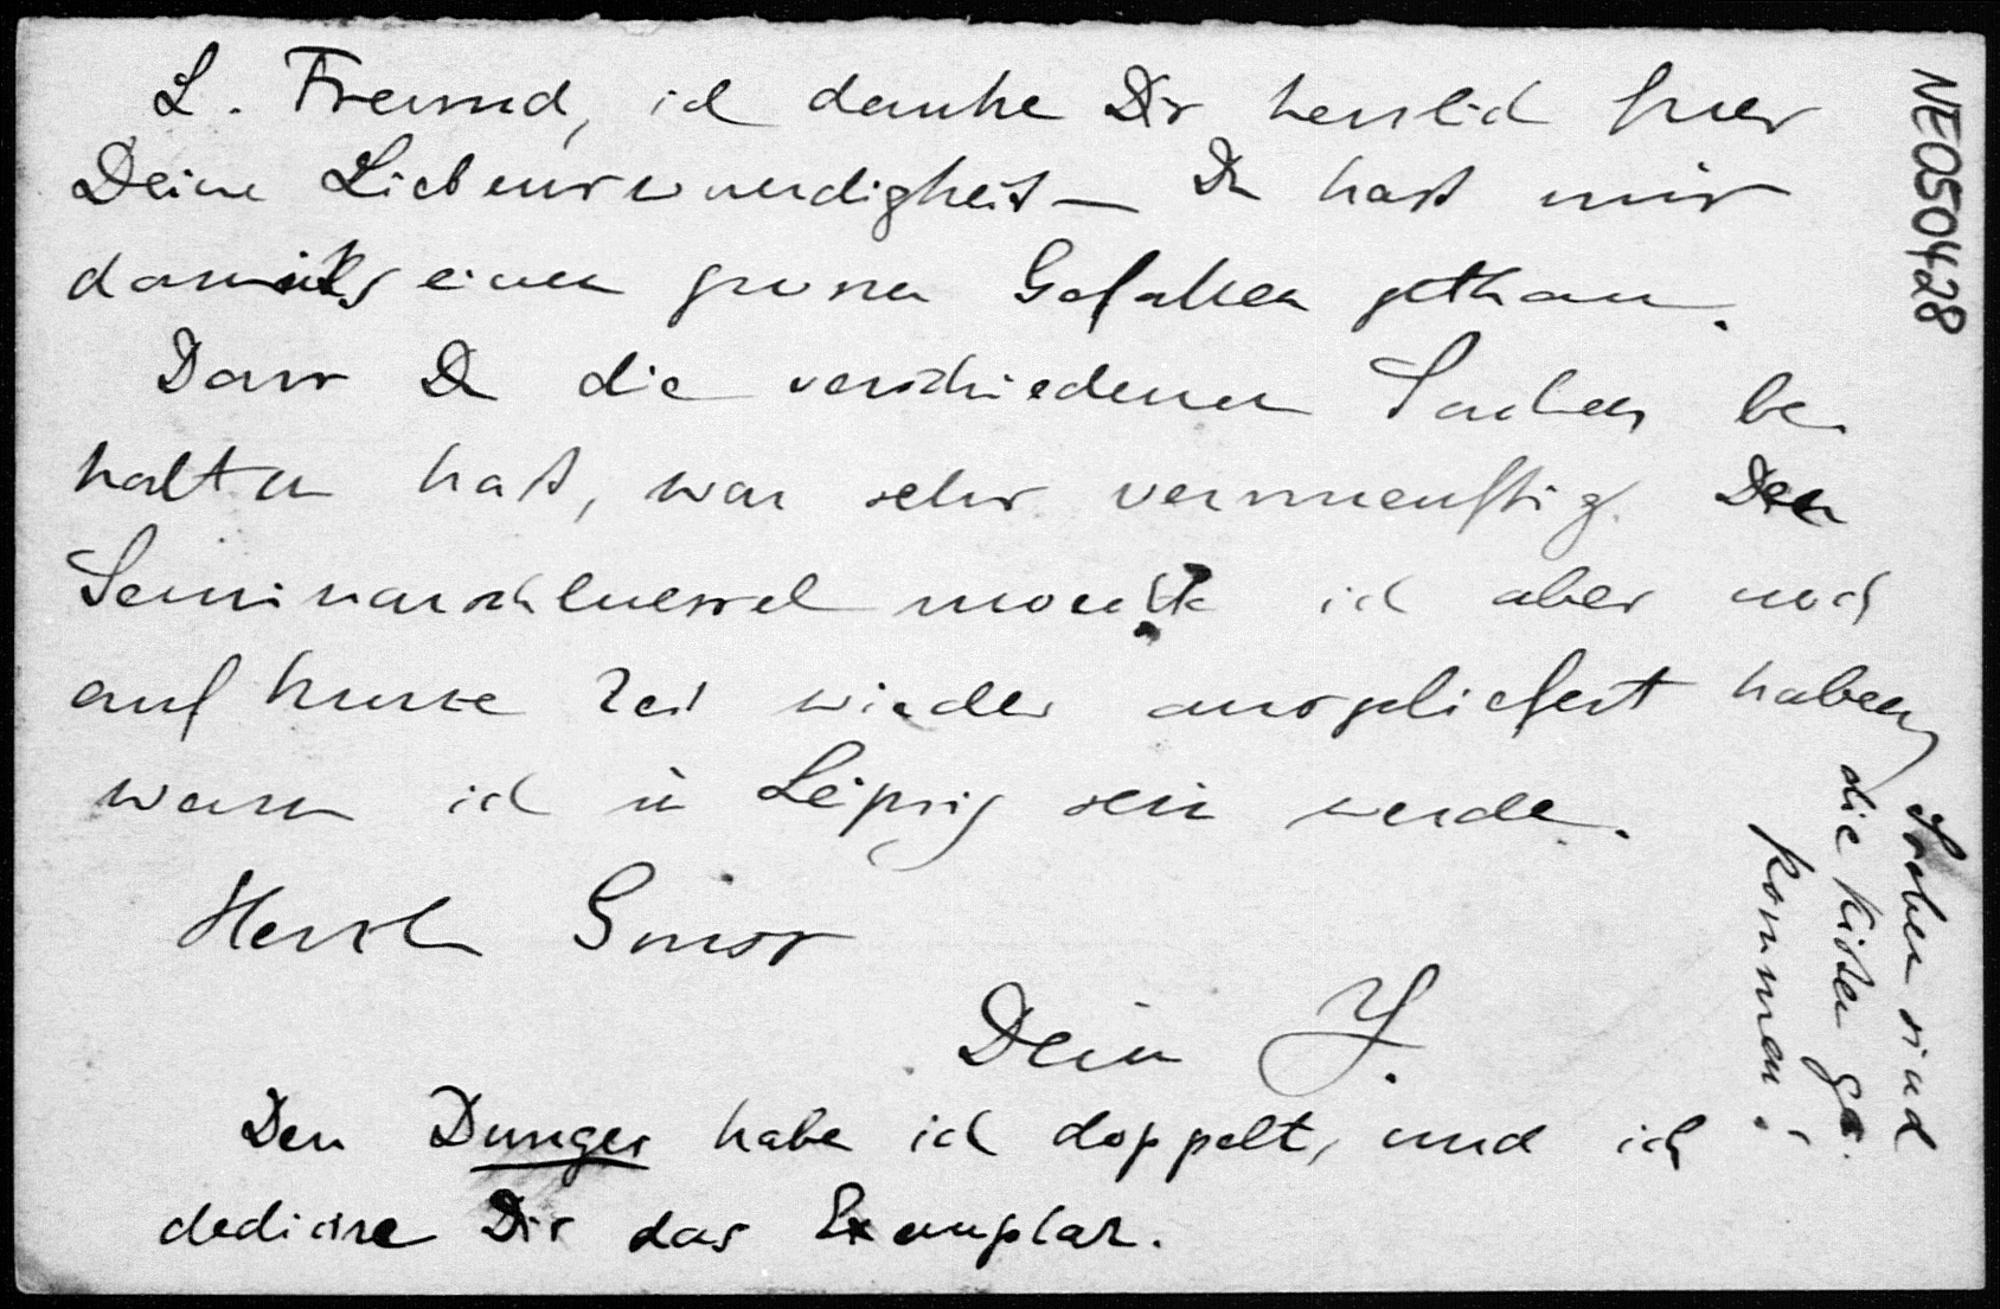 L. Freund, ich danke Dir herzlich fuer
Deine Liebenswuerdigkeit — Du hast mir
damit einen grossen Gefallen gethan.
Dass Du die verschiedenen Sachen be-
halten hast, war sehr vernuenftig. Den
Seminarschluessel moechte ich aber noch
auf kurze Zeit wieder ausgeliefert haben,
wenn ich in Leipzig sein werde.
Herzl. Gruss
Dein J.
Den Dunger habe ich doppelt, und ich
dedicire Dir das Exemplar.
Soeben sind
die Kisten ge-
kommen!
NE050428